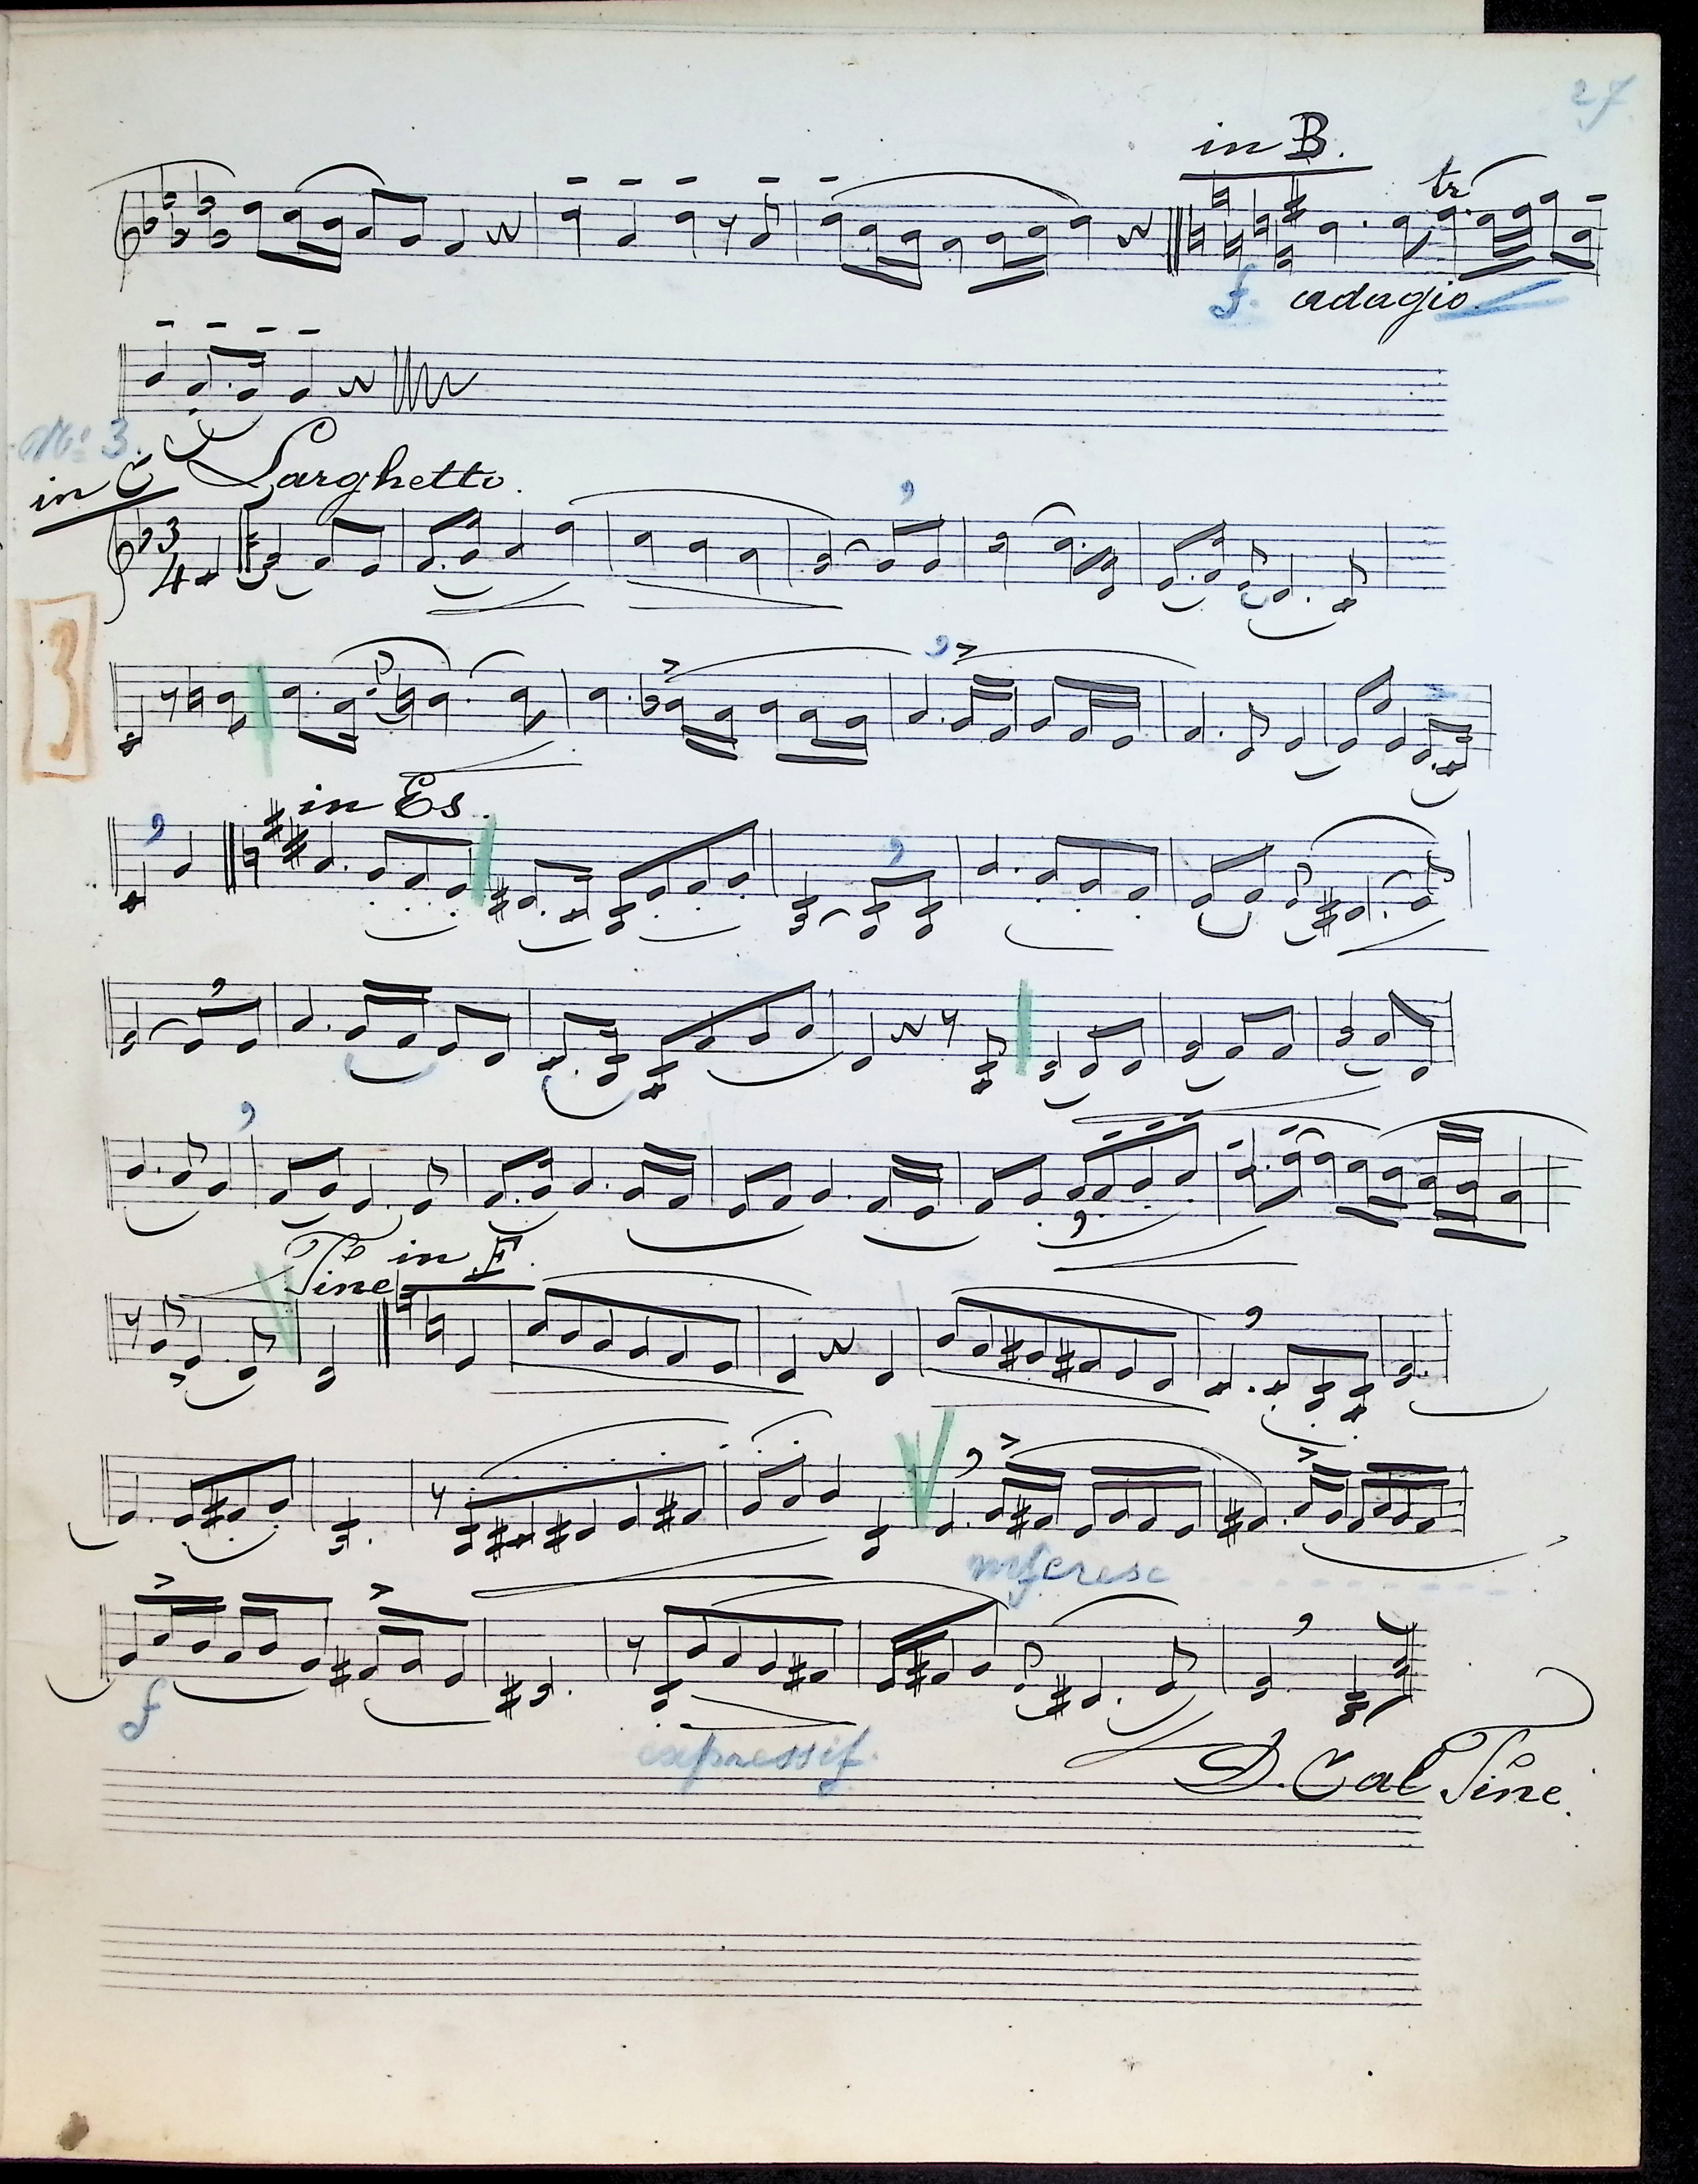 27
in B.
tr
f. adagio
No: 3.
in C Larghetto.
3
4
3
in Es.
Fine in F.
mf cresc
f
expressif.
D. C al Fine.